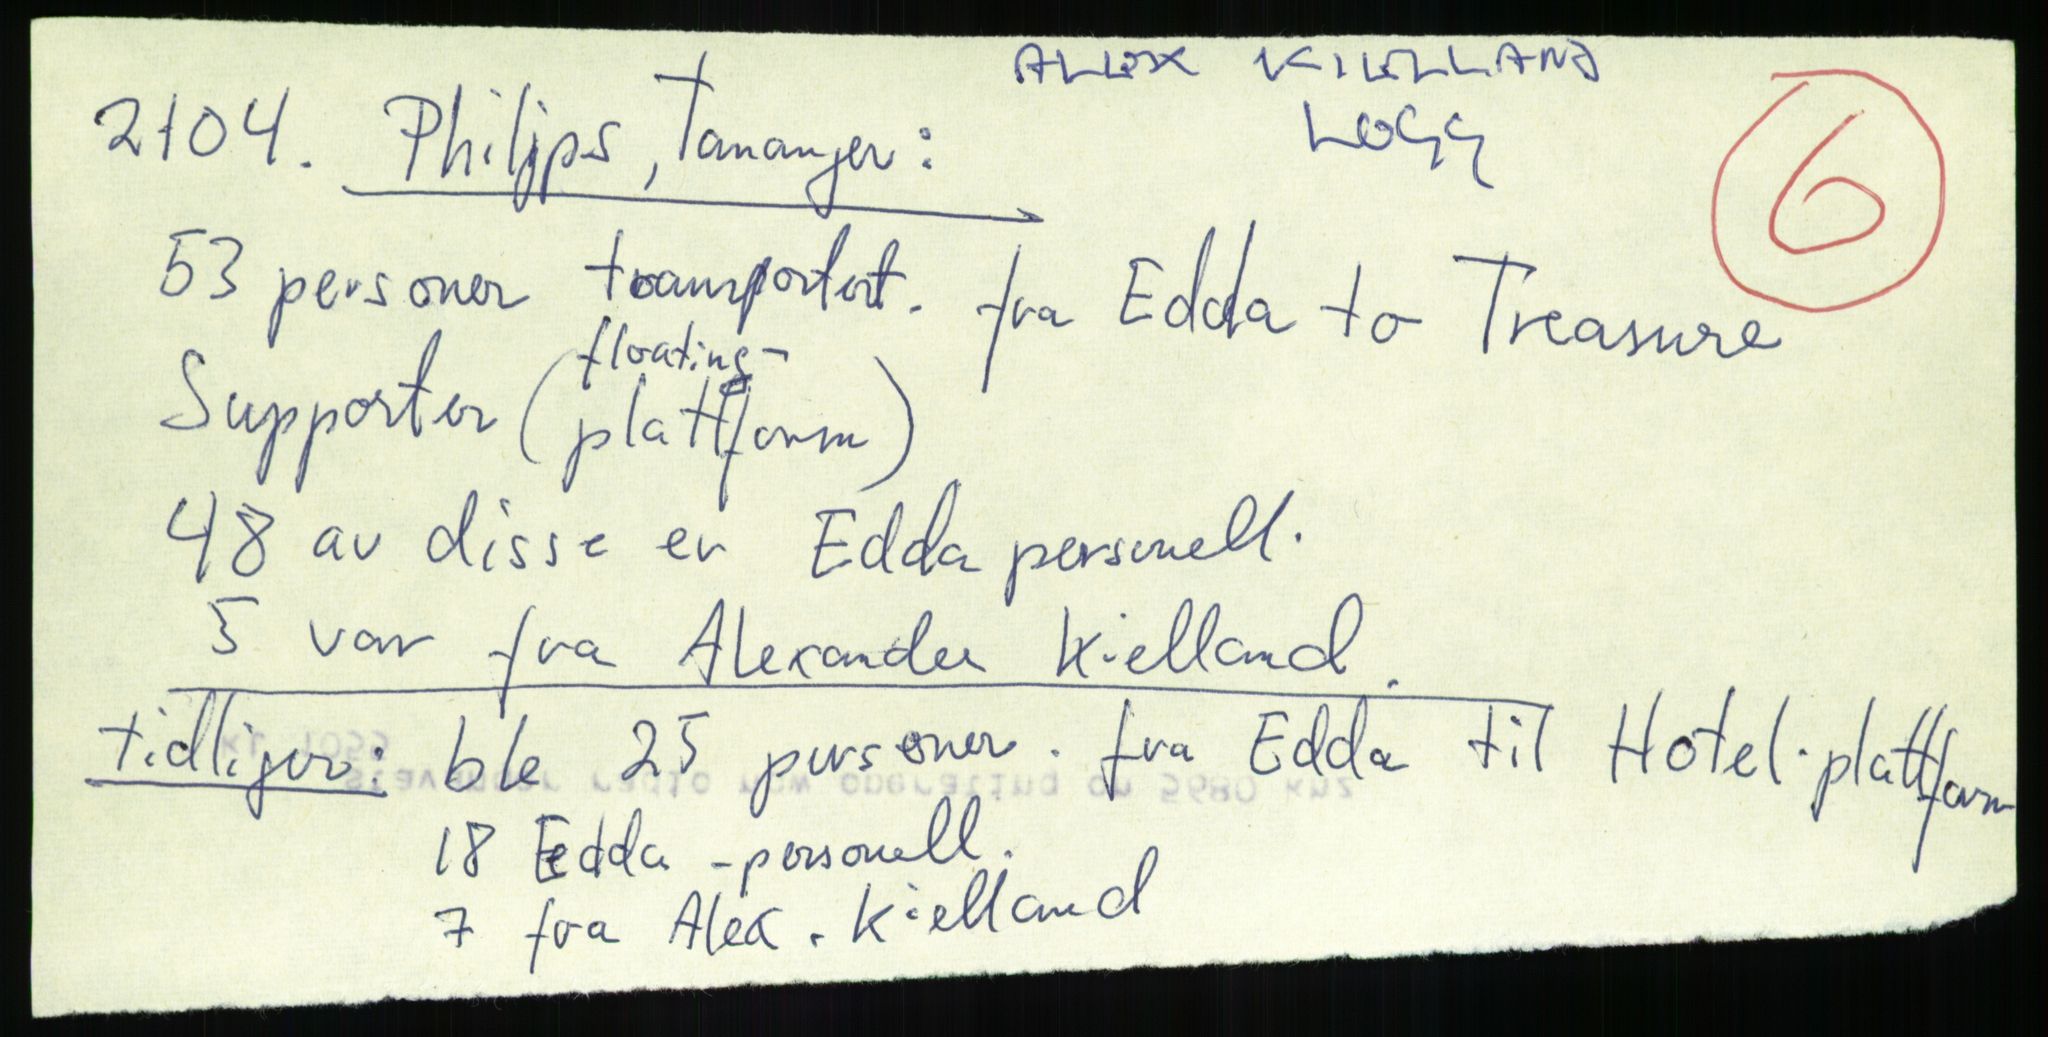 ALEX KIELLAND
LOGG
6
2104. Philips, Tananger:
53 personer transportert. fra Edda to Treasure
Supporter (floating-
plattform)
48 av disse er Edda personell.
5 var fra Alexander Kielland.
tidligere: ble 25 personer. fra Edda til Hotel-plattform
18 Edda-personell.
7 fra Alex. Kielland
stavanger radio now operating on 5680 khz